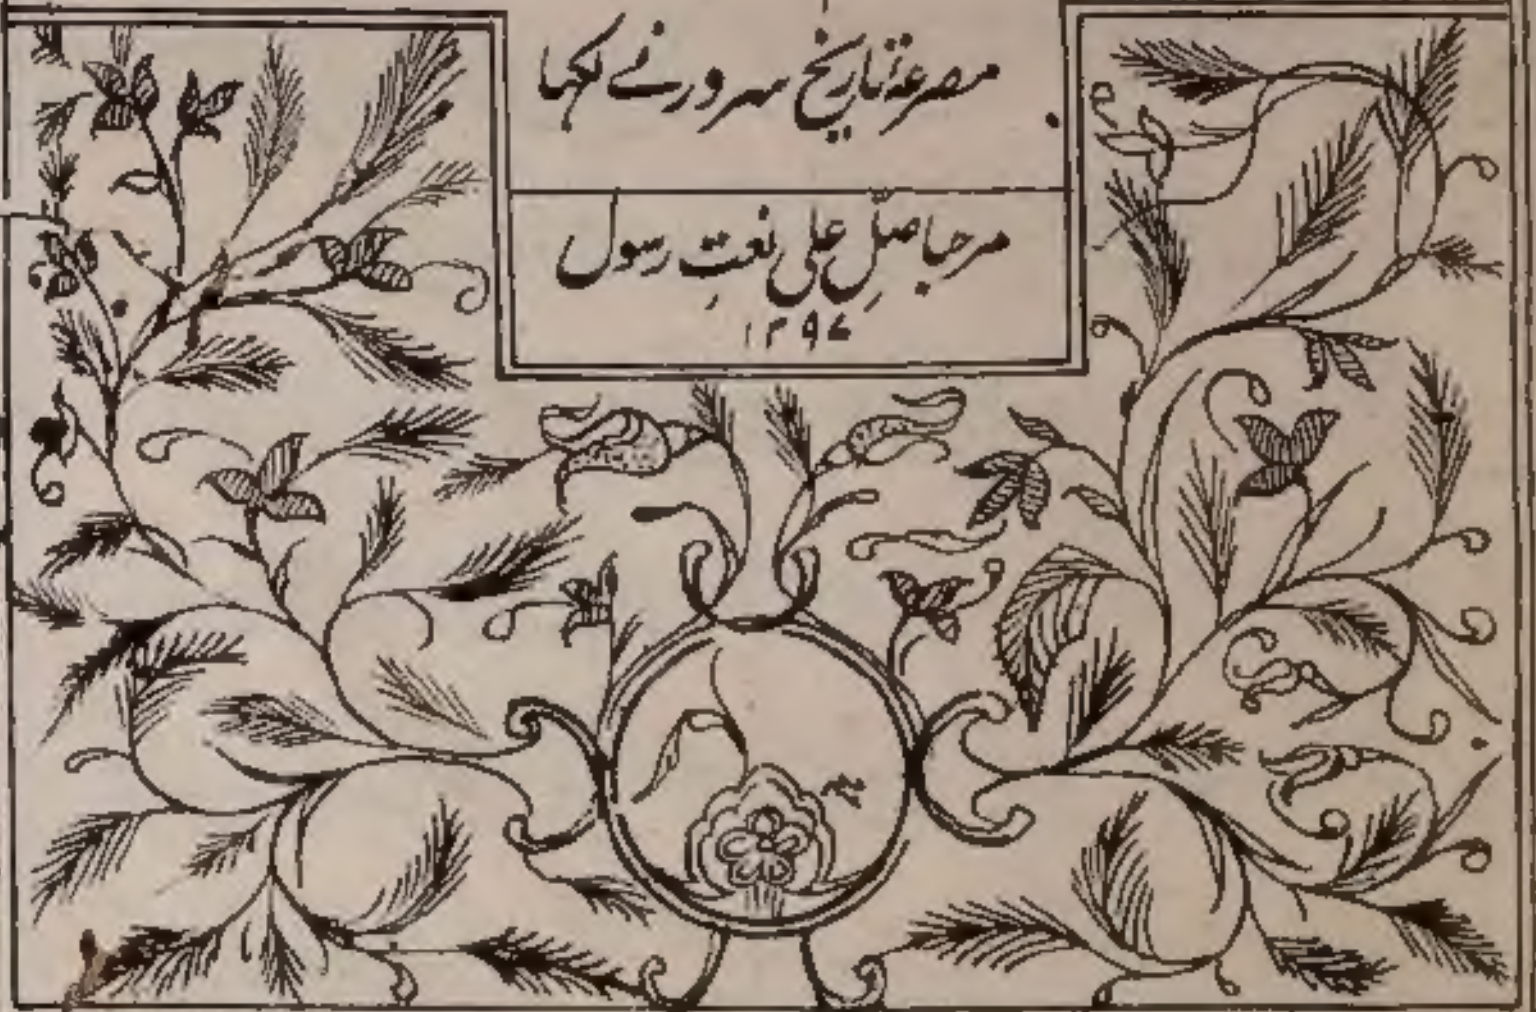 مصرعۂ تاریخ سرور نے لکہا
مرحبا صلِّ علی نعتِ رسول
۱۲۹۷